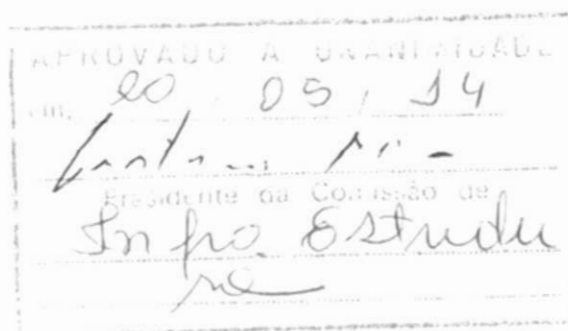 APROVADO A UNANIMIDADE
em, 20 / 05 / 14
Presidente da Comissão de
Infra Estrutu
ra